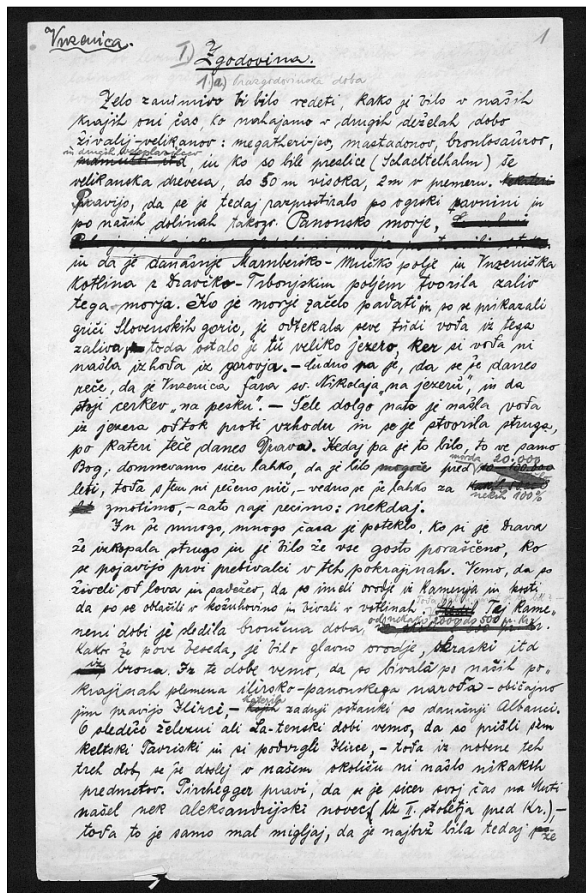 Vuzenica.
1
I) Zgodovina.
1.a) Prazgodovinska doba
Zelo zanimivo bi bilo vedeti, kako je bilo v naših
krajih oni čas, ko nahajamo v drugih deželah dobo
živalij-velikanov: megatheri-jev, mastadonov, brontosaurov,
in drugih
mamutov itd, in ko so bile preslice (Schachtelhalm) še
velikanska drevesa, do 50 m visoka, 2m v premeru.
Pravijo, da se je tedaj razprostiralo po ogrski ravnini in
po naših dolinah takozv. Panonsko morje,
in da je današnje Marnberško-Mučko polje in Vuzeniška
kotlina z Dravčko-Trbonjskim poljem tvorila zaliv
tega morja. Ko je morje začelo padati in so se prikazali
griči Slovenskih goric, je odtekala seve tudi voda iz tega
zaliva, toda ostalo je tu veliko jezero, ker si voda ni
našla izhoda iz gorovja. – Čudno pa je, da se še danes
reče, da je Vuzenica fara sv. Nikolaja „na jezeru“, in da
stoji cerkev „na pesku“. – Šele dolgo nato je našla voda
iz jezera odtok proti vzhodu in se je stvorila struga,
po kateri teče danes Drava. Kedaj pa je to bilo, to ve samo
morda 20.000
Bog; domnevamo sicer lahko, da je bilo mogoče pred
leti, toda s tem ni rečeno nič, – vedno se še lahko za
nekih 100%
zmotimo, – zato raje recimo: nekdaj.
In še mnogo, mnogo časa je poteklo, ko si je Drava
že izkopala strugo in je bilo že vse gosto poraščeno, ko
se pojavijo prvi prebivalci v teh pokrajinah. Vemo, da so
živeli od lova in sadežev, da so imeli orodje iz kamenja in kosti
da so se oblačili v kožuhovino in bivali v votlinah. Tej kame-
od nekako 2000 do 500 pr. Kr.
neni dobi je sledila bronČena doba,
kakor že pove beseda, je bilo glavno orodje, okraski itd
iz brona. Iz te dobe vemo, da so bivala po naših po-
krajinah plemena ilirsko-panonskega naroda – običajno
katerih
jim pravijo Ilirci, – kojih zadnji ostanki so današnji Albanci.
O sledeče železni ali La-tenski dobi vemo, da so prišli sem
keltski Tavriski in si podvrgli Ilirce, – toda iz nobene teh
treh dob, se še doslej v našem okolišu ni našlo nikakih
predmetov. Pirchegger pravi, da se je sicer svoj čas na Muti
našel nek aleksandrijski novec (iz II. stoletja pred Kr.), –
toda to je samo mal migljaj, da je najbrž bila tedaj že